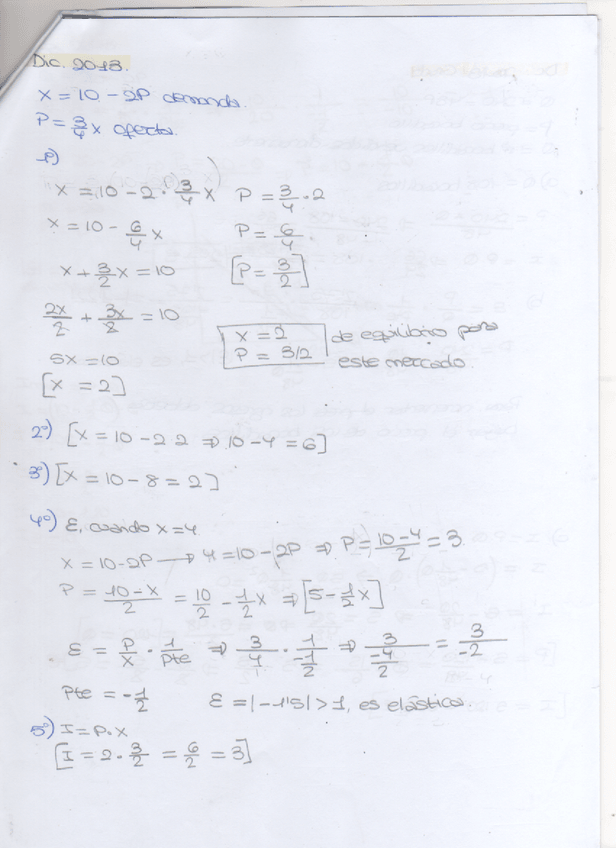 Dic. 2013.
X = 10 - 2P demanda.
P = 3/4 x oferta.
1º)
X = 10 - 2 · 3/4 X P = 3/4 · 2
X = 10 - 6/4 x P = 6/4
x + 3/2 x = 10 [P = 3/2]
2x/2 + 3x/2 = 10
X = 2 de equilibrio para
P = 3/2 este mercado.
5x = 10
[X = 2]
2º) [X = 10 - 2 2 ⇒ 10 - 4 = 6]
3º) [X = 10 - 8 = 2]
4º) ε, cuando x = 4
X = 10 - 2P → 4 = 10 - 2P ⇒ P = 10-4/2 = 3
P = 10-x/2 = 10/2 - 1/2 x ⇒ [5 - 1/2 x]
ε = P/x · 1/Pte ⇒ 3/4 · 1/-1/2 ⇒ 3/-4/2 = 3/-2
Pte = -1/2 ε = |-1'5| > 1, es elástica.
5º) I = P · X
[I = 2 · 3/2 = 6/2 = 3]